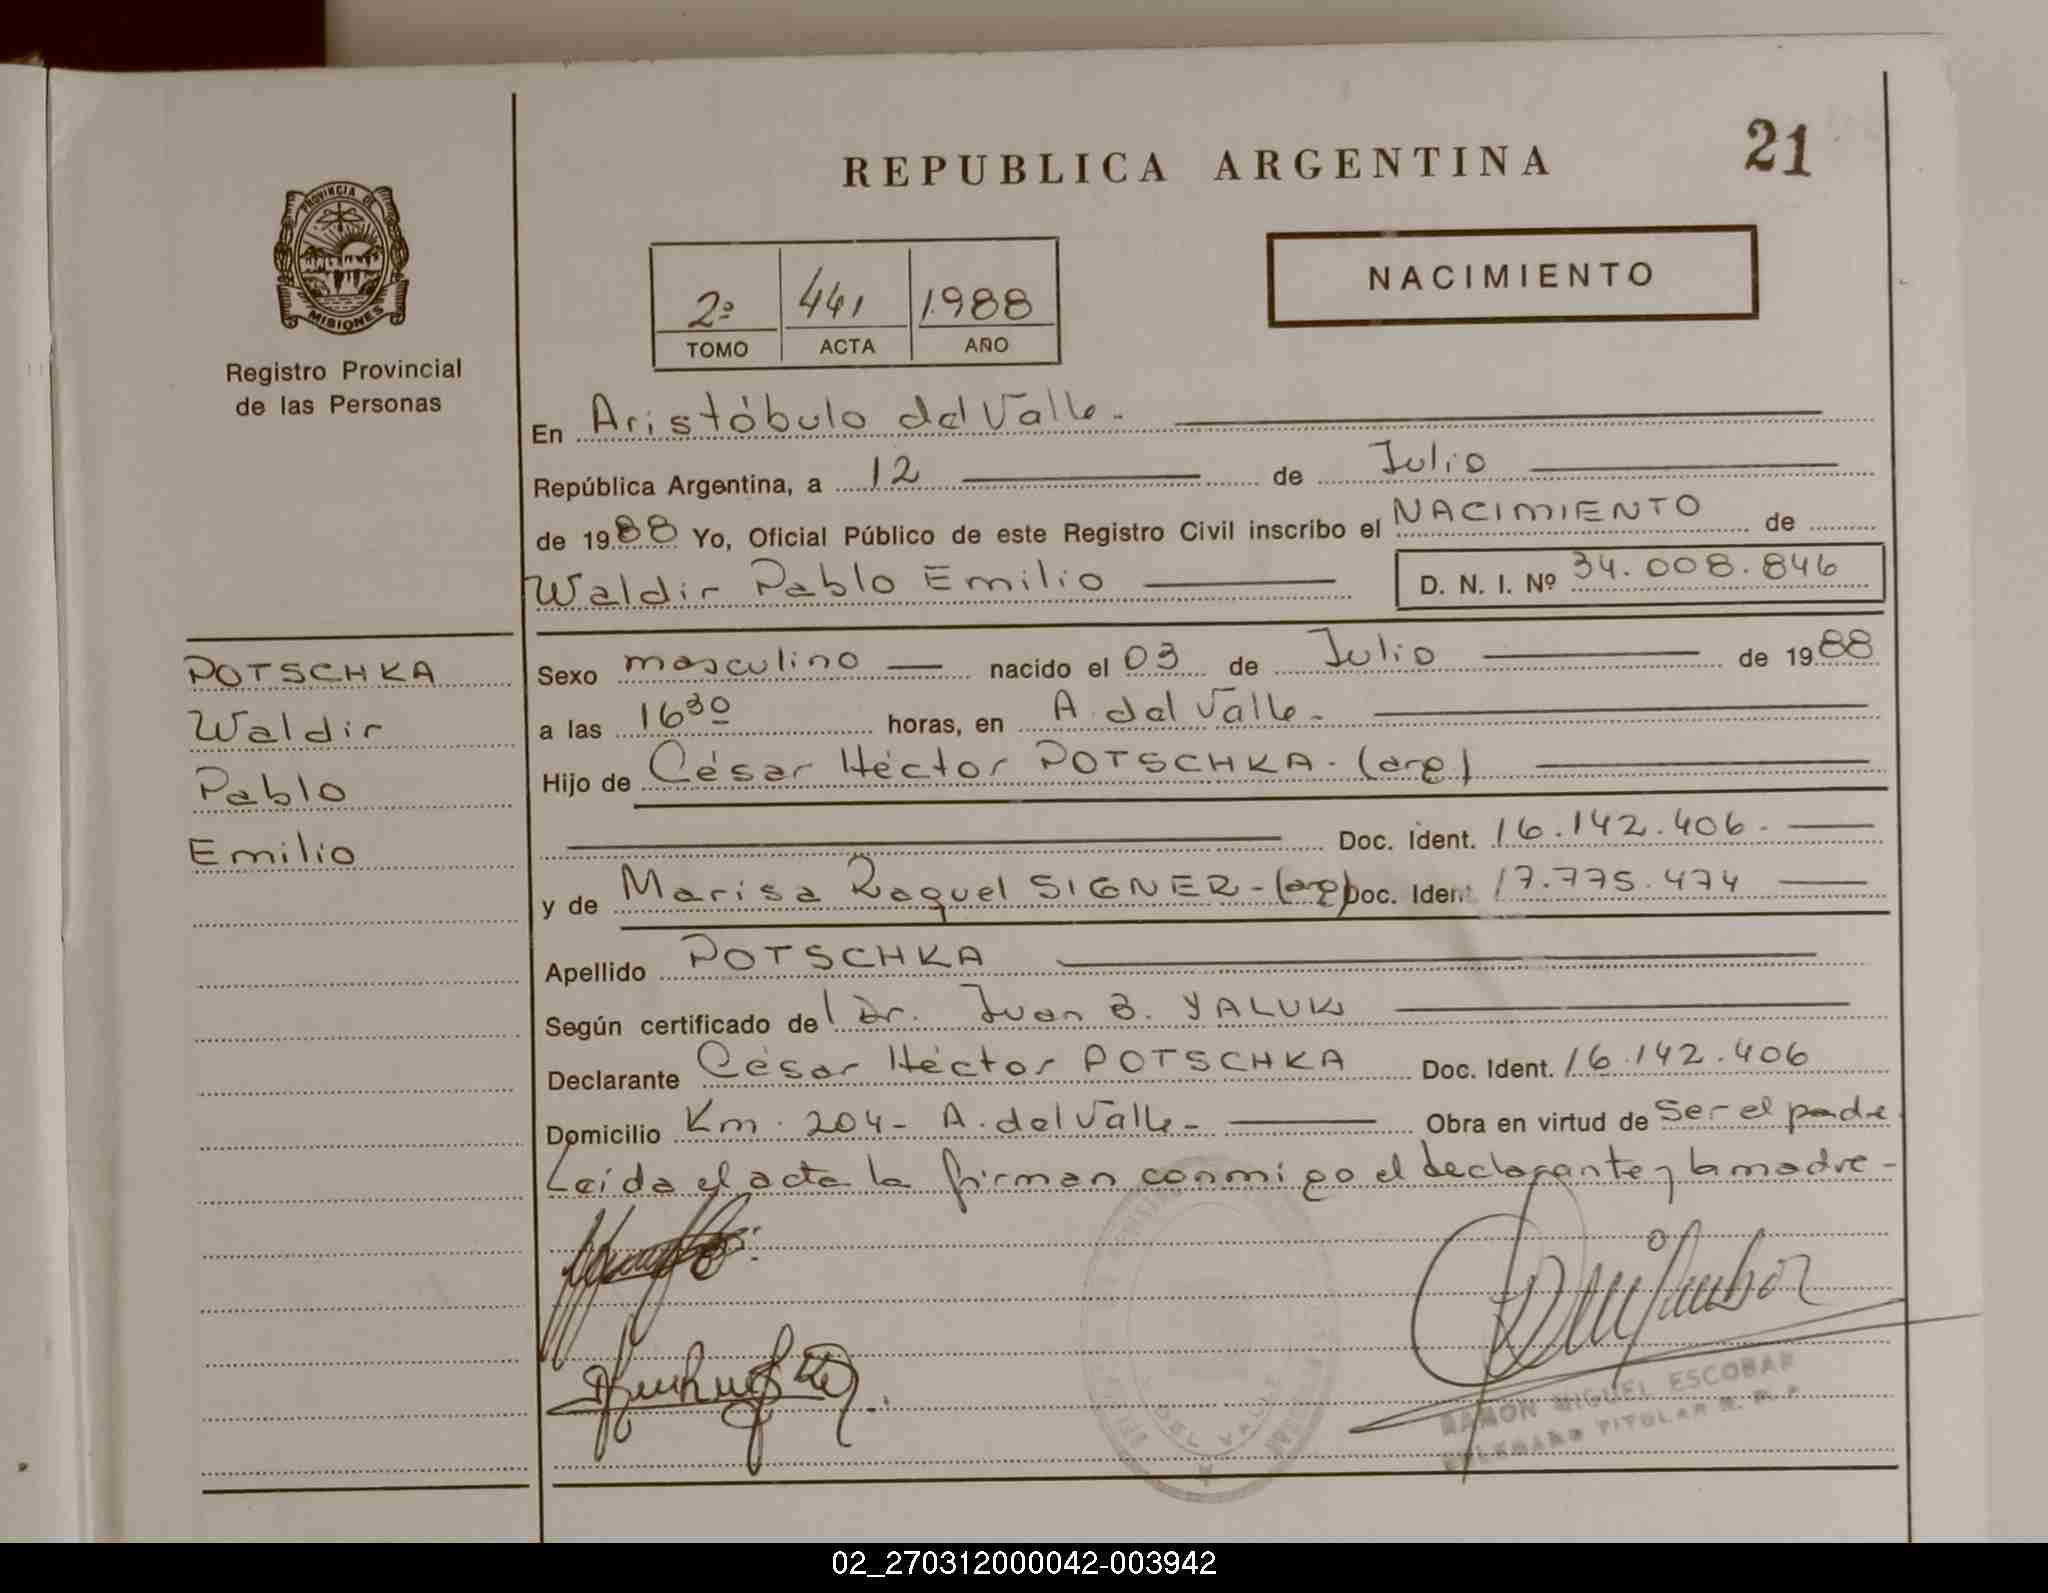 21
REPUBLICA ARGENTINA
PROVINCIA DE
MISIONES
Registro Provincial
de las Personas
NACIMIENTO
2º 441 1988
TOMO ACTA AÑO
En Aristóbulo del Valle.
República Argentina, a 12 de Julio
de 1988 Yo, Oficial Público de este Registro Civil inscribo el NACIMIENTO de
Waldir Pablo Emilio D. N. I. Nº 34.008.846
POTSCHKA
Waldir
Pablo
Emilio
Sexo masculino nacido el 03 de Julio de 1988
a las 16 30 horas, en A. del Valle.
Hijo de César Héctor POTSCHKA. (arg)
Doc. Ident. 16.142.406.
y de Marisa Raquel SIGNER - (arg) Doc. Ident. 17.775.474
Apellido POTSCHKA
Según certificado del Dr. Juan B. YALUK
Declarante César Héctor POTSCHKA Doc. Ident. 16.142.406
Domicilio Km. 204 - A. del Valle - Obra en virtud de ser el padre.
Leída el acta la firman conmigo el declarante y la madre -
DEL VALLE
RAMON MIGUEL ESCOBAR
DELEGADO TITULAR R. P. P.
02_270312000042-003942